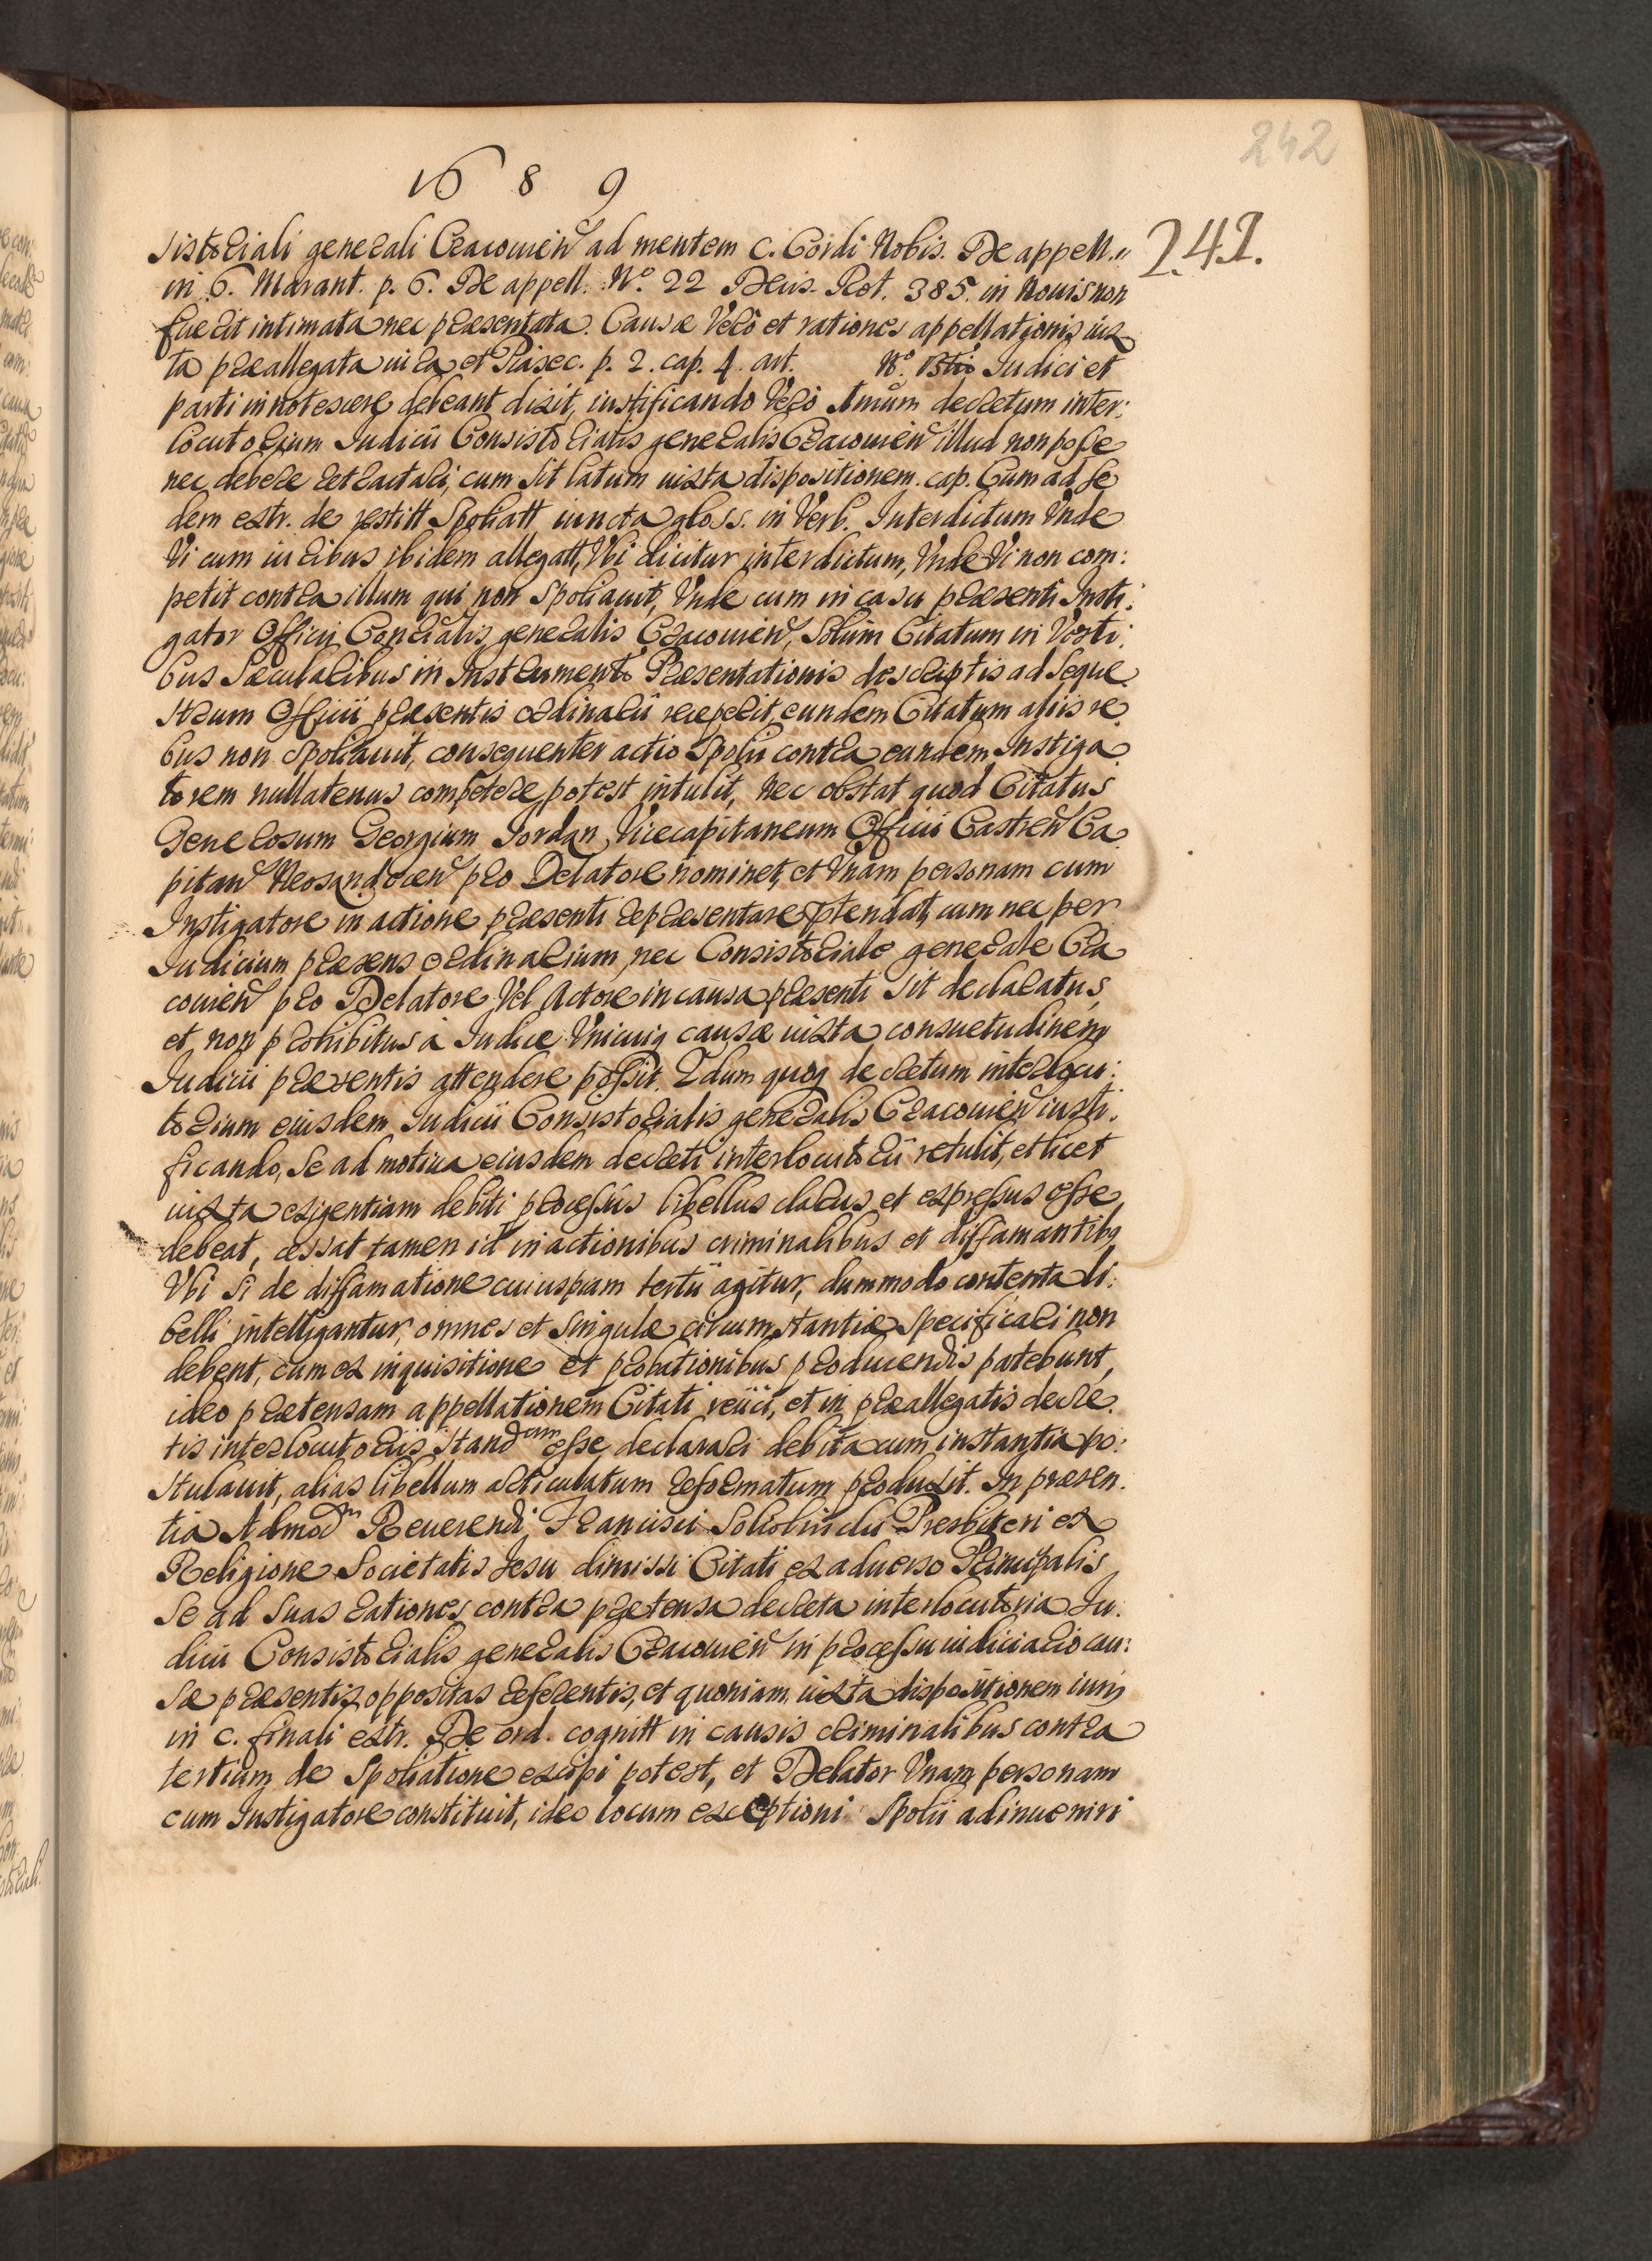 242
1689
241.
sistoriali generali Cracouien ad mentem c. Cordi Nobis. De appell.
in 6. Marant. p. 6. De appell. N.º 22 Decis. Rot. 385. in Nouis non
fuerit intimata nec præsentata. Causæ Verò et rationes appellationis iux
ta præallegata iura et Piasec. p. 2. cap. 4. art. Nº. Judici et
parti innotescere debeant dixit, iustificando Verò Amum decretum inter:
locutorium Judicii Consistorialis generalis Cracouien illud non posse
nec debere retractari, cum sit latum iuxta dispositionem. cap. Cum ad se
dem extr. de restitt Spoliatt iuncta gloss. in Verb. Interdictum Vnde
Vi cum iuribus ibidem allegatt, Vbi dicitur interdictum, Vnde Vi non com:
petit contra illum qui non Spoliauit, Vnde cum in casu præsenti Insti:
gator Officij Consialis generalis Cracouien, Solum Citatum in Vesti:
bus Sæcularibus in Instrumento Præsentationis descriptis ad Seque
strum Officii præsentis ordinarii recepērit, eundem Citatum aliis re
bus non Spoliauit, consequenter actio Spolii contra eundem Instiga
torem nullatenus competere potest intulit, Nec obstat quod Citatus
Generosum Georgium Jordan Vicecapitaneum Officii Castren Ca
pitan Neosandecen pro Delatore nominet, et Vnam personam cum
Instigatore in actione præsenti repræsentare ptendat, cum nec per
Judicium præsens ordinarium, nec Consistoriale generale Cra
couien pro Delatore Vel Actore in causa præsenti sit declaratus,
et non prohibitus à Judice Vnicuiq causæ iuxta consuetudinem
Judicii præsentis attendere possit. 2dum quoq decretum interlocu:
torium eiusdem Judicii Consistorialis generalis Cracouien iusti:
ficando, Se ad motiua eiusdem decreti interlocutorii retulit, et licet
iuxta exigentiam debiti processûs libellus clarus et expressus esse
debeat, cessat tamen id in actionibus criminalibus et diffamantibq
Vbi Si de diffamatione cuiuspiam tertii agitur, dummodo contenta li:
belli intelligantur, omnes et singulæ circumstantiæ Specificari non
debent, cum ex inquisitione et probationibus producendis patebunt,
ideo prætensam appellationem Citati reiici, et in præallegatis decre
tis interlocutoriis, Stand um esse declarari debita cum instantia po:
stulauit, alias libellum articulatum reformatum produxit. In præsen:
tia Admod m Reuerendi Francisci Presbiteri ex
Religione Societatis Jesu dimissi Citati ex aduerso Principalis
Se ad Suas rationes contra prætensa decreta interlocutoria Ju:
dicii Consistorialis generalis Cracouien in processu iudiciario cau:
sæ præsentis oppositas referentis, et quoniam iuxta dispositionem iuris
in c. finali extr. De ord. cognitt in causis criminalibus contra
tertium de Spoliatione excipi potest, et Delator Vnam personam
cum Instigatore constituit, ideo locum exceptioni Spolii adinueniri